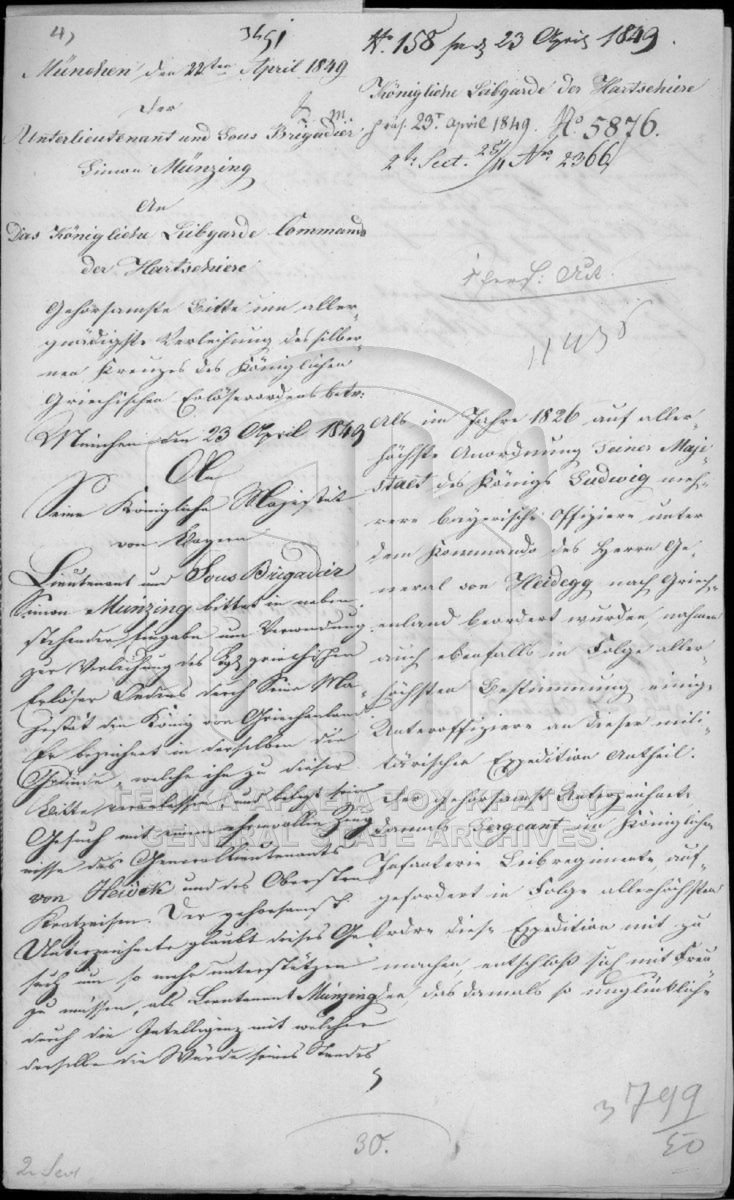 4)
3451
München den 22ten April 1849
Der
Unterlieutenant und Sous Brigadier
Simon Münzing
An
Das Königliche Leibgarde Commando
der Hartschiere
Gehorsamste Bitte um aller-
gnädigste Verleihung des silber-
nen Kreuzes des Königlichen
Griechischen Erlöserordens betr:
München den 23 April 1849
An
Seine Königliche Majestät
von Bayern
Lieutenant und Sous Brigadier
Simon Münzing bittet in neben-
stehender Eingabe um Verwendung
zur Verleihung des Kgl. griechischen
Erlöser Ordens durch Seine Ma-
jestät den König von Griechenland
Er bezeichnet in derselben die
Gründe, welche ihn zu dieser
Bitte veranlassen, und belegt sein
Gesuch mit einem Zeug-
nisse des Generallieutenants
von Heideck und des Obersten
Der gehorsamst
Unterzeichnete glaubt dieses Ge-
such um so mehr unterstützen
zu müssen, als Lieutenant Münzing
durch die Intelligenz mit welcher
derselbe die Würde seines Standes
No. 158 23 April 1849.
Königliche Leibgarde der Hartschiere
präs. 23t April 1849. No 5876.
2te Sect. 25/4 Nro 2366
Act.
Als im Jahre 1826 auf aller-
höchste Anordnung Seiner Maje-
staet des Königs Ludwig meh-
rere bayerische Offiziere unter
dem Kommando des Herrn Ge-
neral von Heidegg nach Griech-
enland beordert wurden, nahmen
auch ebenfalls in Folge aller-
höchsten Bestimmung einige
Unteroffiziere an dieser mili-
tärischen Expedition Antheil.
Der gehorsamst Unterzeichnete
damals Sergeant im Königlichen
Infanterie Leibregimente, auf-
gefordert in Folge allerhöchster
Ordre diese Expedition mit zu
machen, entschloß sich mit Freu-
den, das damals so unglückliche
3799
50
30.
2. Sect
ΓΕΝΙΚΑ ΑΡΧΕΙΑ ΤΟΥ ΚΡΑΤΟΥΣ
GENERAL STATE ARCHIVES